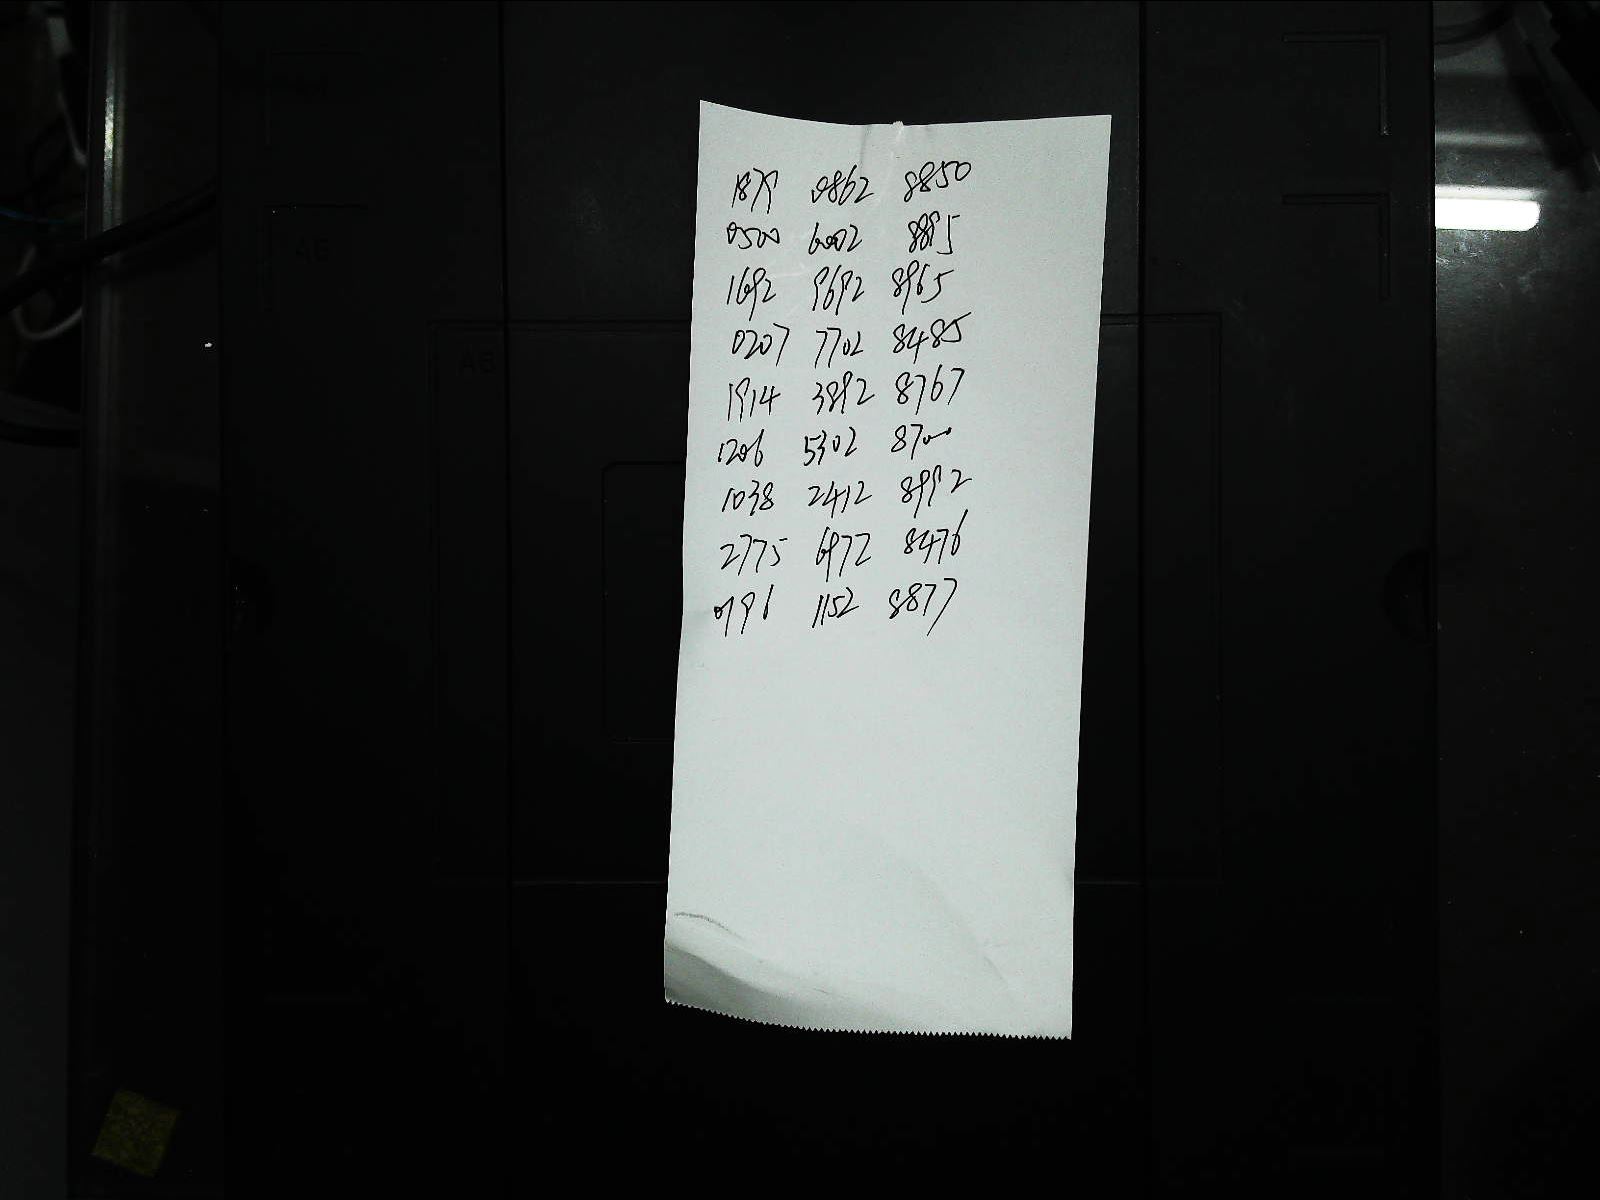 1879 0862 8850
0500 6002 8895
1692 9692 8965
0207 7702 8485
1914 3892 8767
1206 5302 8700
1038 2412 8992
2775 6972 8476
0796 1152 8877
A6
A6